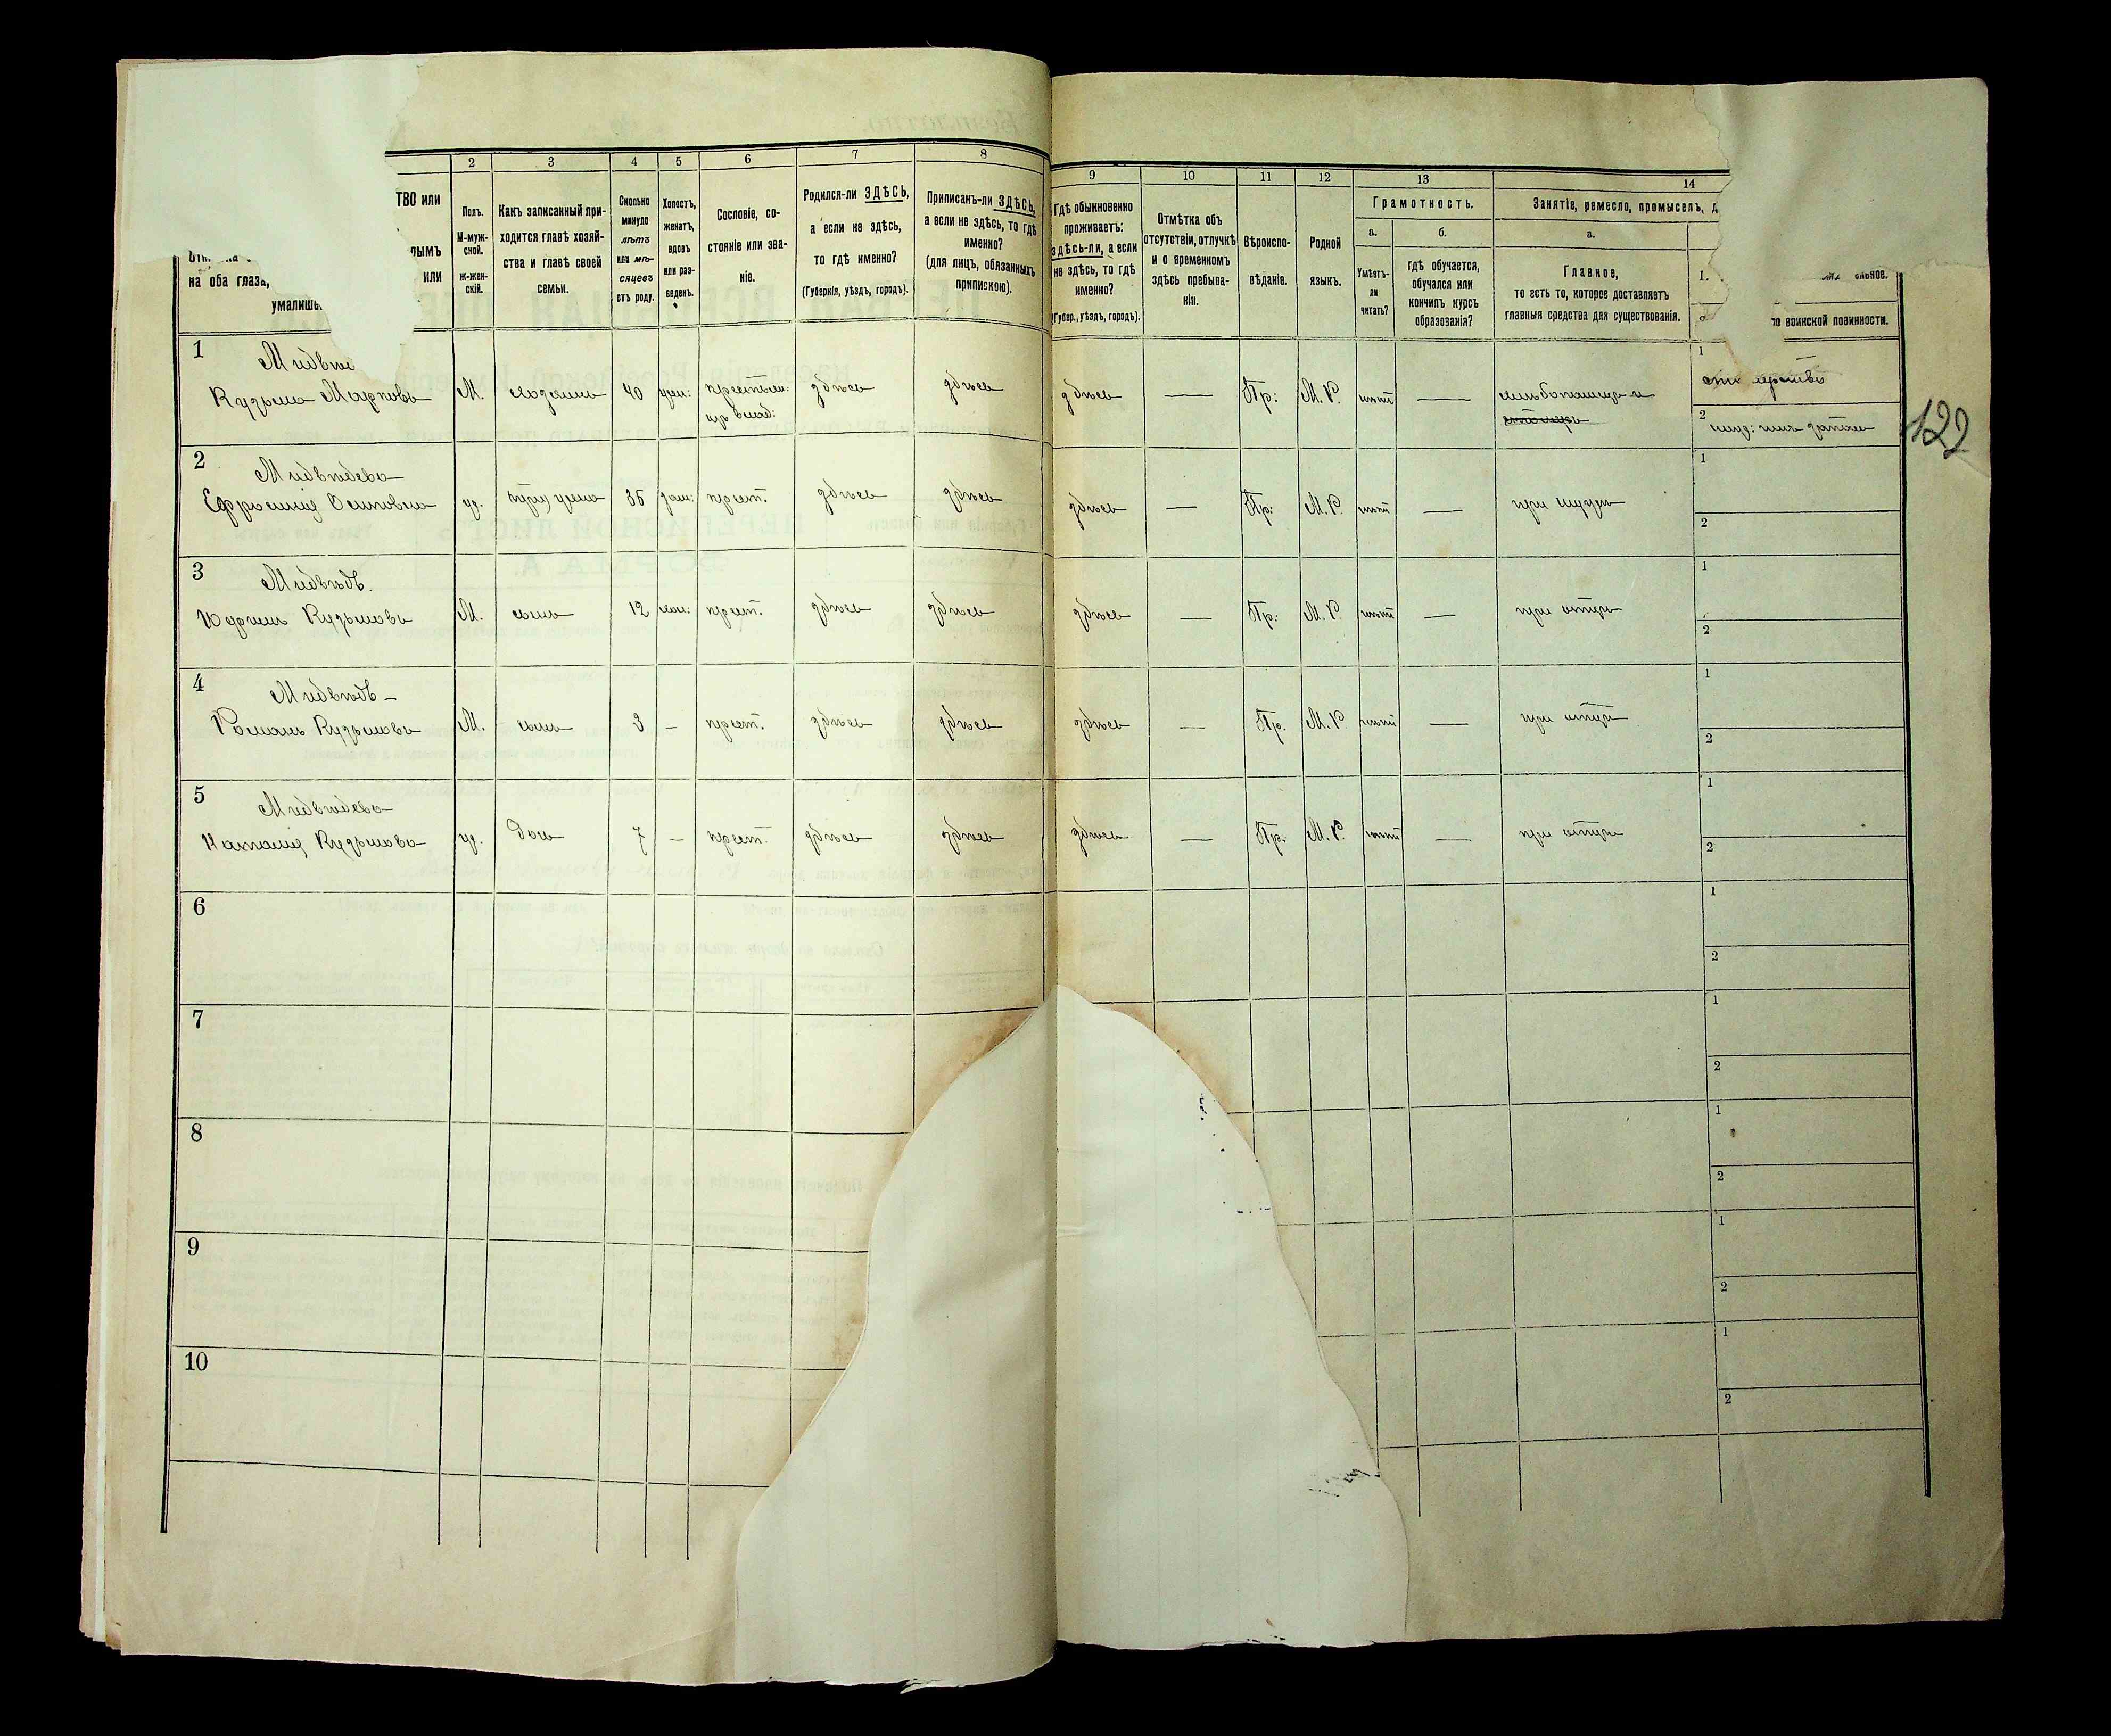 2 3 4 5 6 7 8 9 10 11 12 13 14
ТВО или
РЫМЪ
ИЛИ
на оба глаза,
Полъ.
М-муж-
ской.
Ж-жен-
скій.
Какъ записанный при-
ходится главѣ хозяй-
ства и главѣ своей
семьи.
Сколько
минуло
лѣтъ
или мѣ-
сяцевъ
отъ роду.
Холостъ,
женатъ,
вдовъ
или раз-
веденъ.
Сословіе, со-
стояніе или зва-
ніе.
Родился-ли ЗДѢСЬ,
а если не здѣсь,
то гдѣ именно?
(Губернія, уѣздъ, городъ).
Приписанъ-ли ЗДѢСЬ,
а если не здѣсь, то гдѣ
именно?
(для лицъ, обязанныхъ
припискою).
Гдѣ обыкновенно
проживаетъ:
здѣсь-ли, а если
не здѣсь, то гдѣ
именно?
(Губер., уѣздъ, городъ).
Отмѣтка объ
отсутствіи, отлучкѣ
и о временномъ
здѣсь пребыва-
ніи.
Вѣроиспо-
вѣданіе.
Родной
языкъ.
Грамотность.
а.
Умѣетъ-
ли
читать?
б.
гдѣ обучается,
обучался или
кончилъ курсъ
образованія?
Занятіе, ремесло, промыселъ, д
а.
Главное,
то есть то, которое доставляетъ
главныя средства для существованія.
1.
о воинской повинности.
1
Кузьма Марковъ М. хозяинъ 40 здѣсь здѣсь здѣсь — Пр: М. Р. нѣтъ —
1
2
122
2 Медвѣдева
Ефросинія Осиповна ж. 35 зам: крест. здѣсь здѣсь здѣсь — Пр: М. Р. нѣтъ — при мужѣ
1
2
3 Медвѣдь.
Кузьмовъ М. сынъ 12 хол: крест. здѣсь здѣсь здѣсь — Пр: М. Р. нѣтъ — при отцѣ
1
2
4 Медвѣдь —
Романъ Кузьмовъ М. сынъ 3 — крест. здѣсь здѣсь здѣсь — Пр. М. Р. нѣтъ — при отцѣ
1
2
5 Медвѣдева
Наталія Кузьмова ж. дочь 7 — крест. здѣсь здѣсь здѣсь — Пр. М. Р. нѣтъ — при отцѣ
1
2
6
1
2
7
1
2
8
1
2
9
1
2
10
1
2